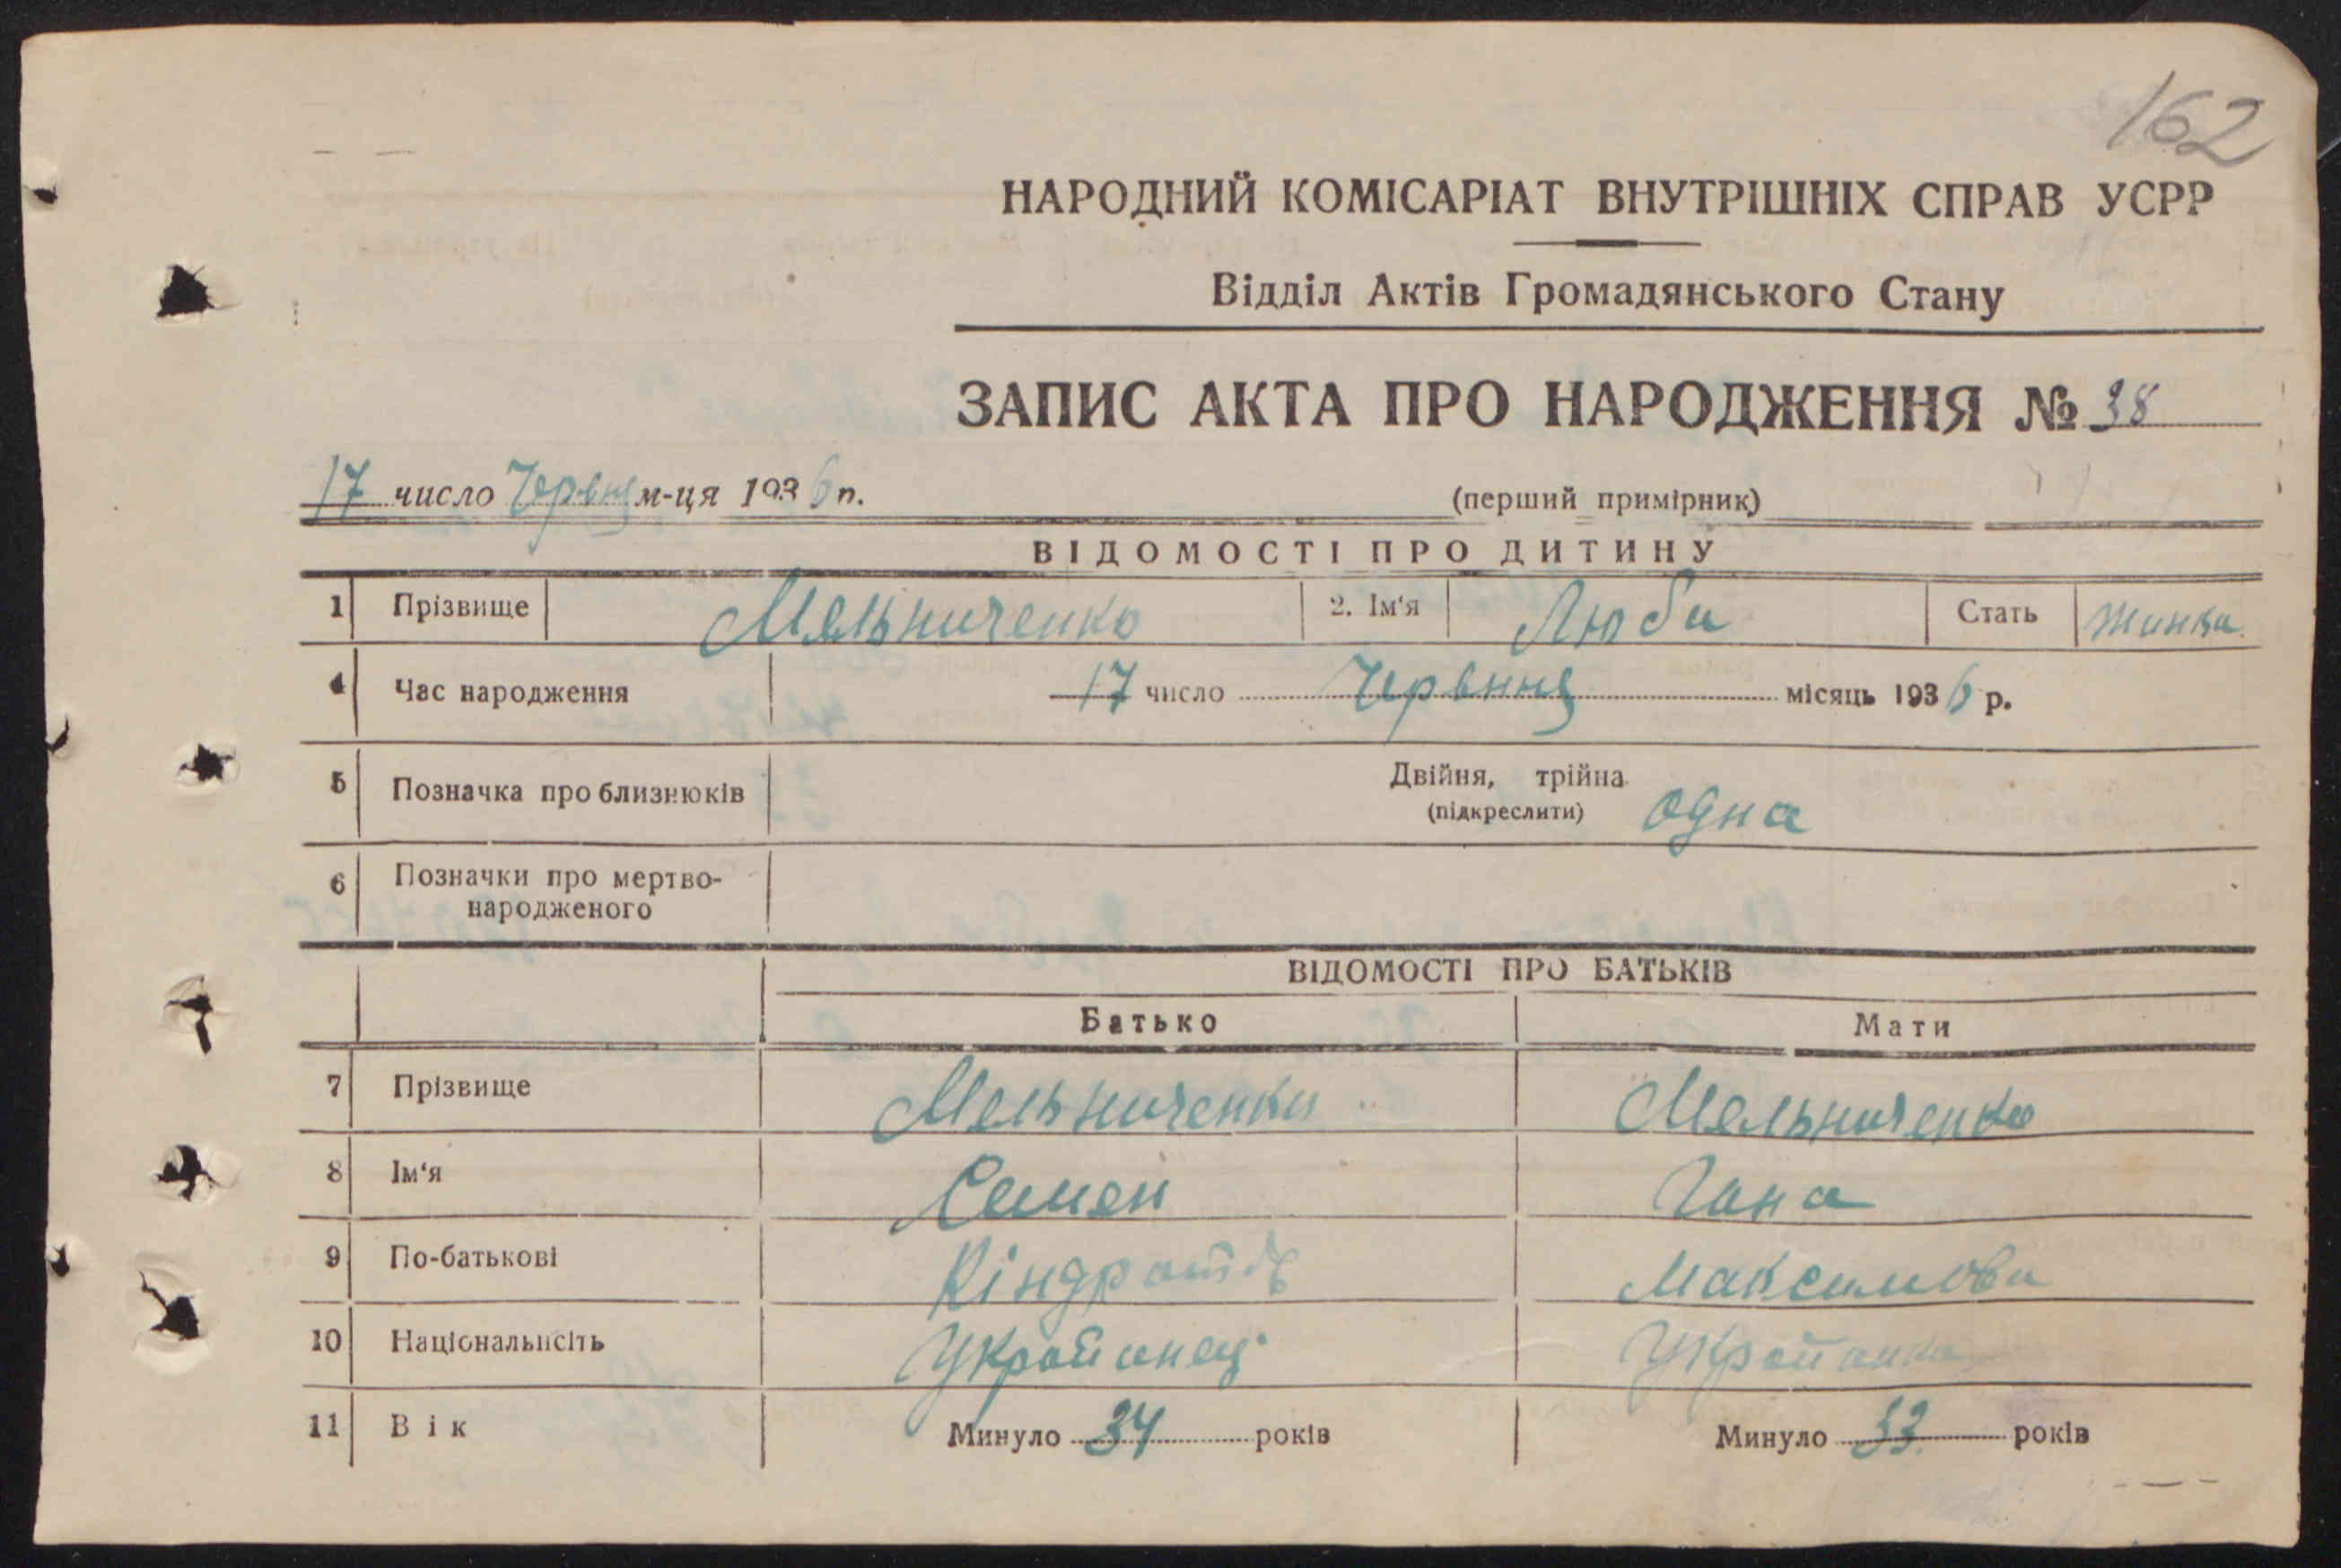 162
НАРОДНИЙ КОМІСАРІАТ ВНУТРІШНІХ СПРАВ УСРР
Відділ Актів Громадянського Стану
ЗАПИС АКТА ПРО НАРОДЖЕННЯ № 38
17 число Червня м-ця 1936 п.
(перший примірник)
ВІДОМОСТІ ПРО ДИТИНУ
1 Прізвище Мельниченко 2. Ім'я Люба Стать
4 Час народження 17 число Червння місяць 1936 р.
5 Позначка про близнюків Двійня, трійна
(підкреслити) одна
6 Позначки про мертво-
народженого
ВІДОМОСТІ ПРО БАТЬКІВ
Батько Мати
7 Прізвище Мельниченко Мельниченко
8 Ім'я Семен Гана
9 По-батькові Кіндратів Максимова
10 Національнсіть Украйанец Украйанка
11 Вік Минуло 34 років Минуло 33 років